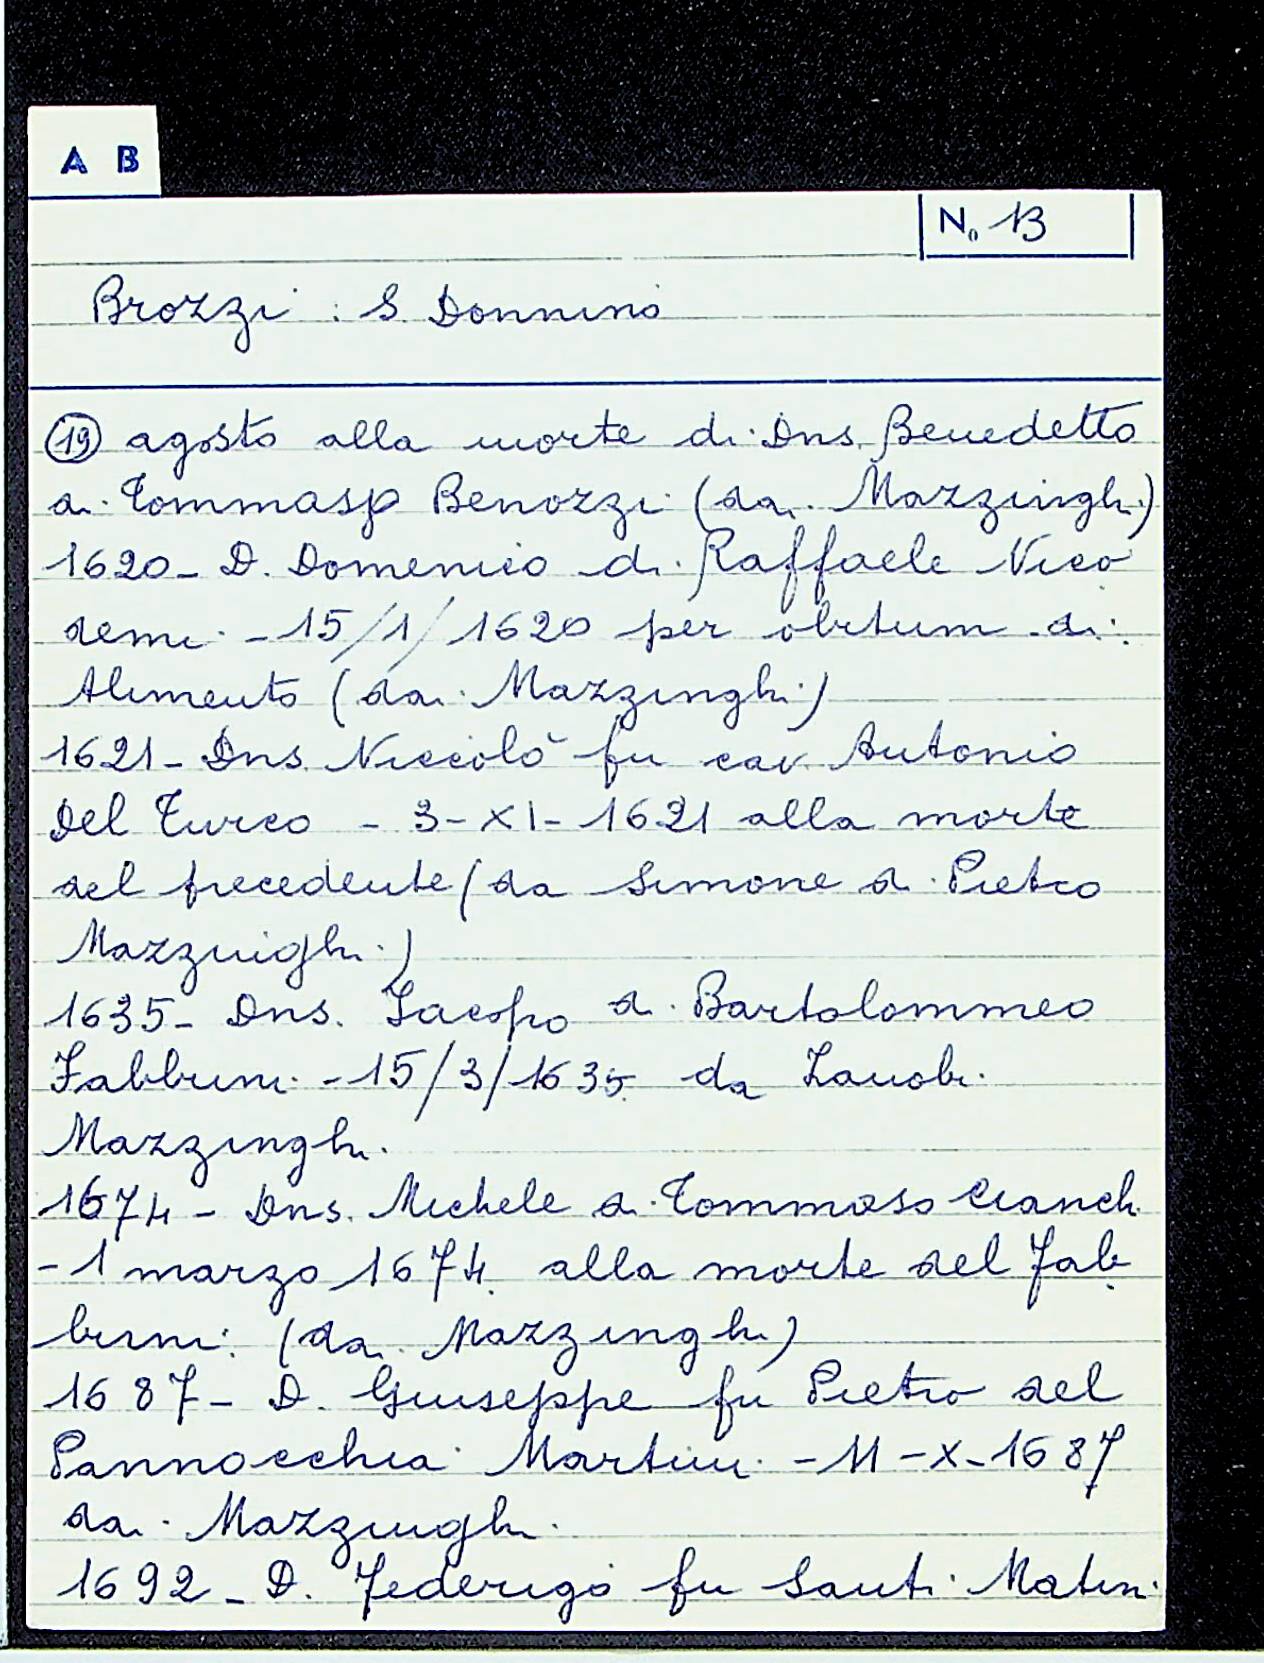 A B
No 13
Brozzi: S. Donnino
19 agosto alla morte di Dns. Benedetto
di Tommaso Benozzi (dai Mazzinghi)
1620- D. Domenico di Raffaele Nico
demi - 15/1/1620 per obitum di
Alimento (dai Mazzinghi)
1621- Dns. Niccolò fu cav. Antonio
Del Turco - 3-XI-1621 alla morte
del precedente (da Simone di Pietro
Mazzinghi)
1635- Dns. Jacopo di Bartolommeo
Fabbrini - 15/3/1635 da Zanobi
Mazzinghi
1674- Dns. Michele di Tommaso Cianchi
- 1 marzo 1674 alla morte del Fab
brini (dai Mazzinghi)
1687- D. Giuseppe fu Pietro del
Pannocchia Martini - 11-X-1687
dai Mazzinghi
1692- D. Federigo fu Santi Matini